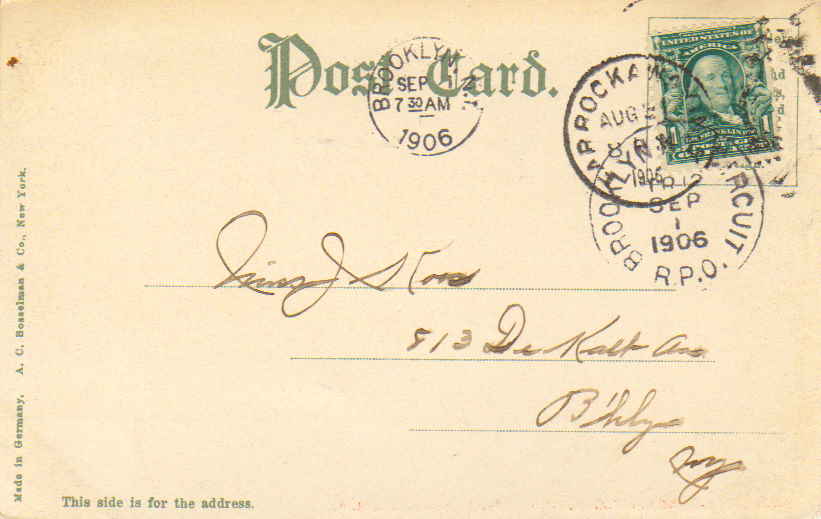 Post Card.
BROOKLYN, N.Y.
SEP 1
7 30 AM
1906
FAR ROCKAWAY
AUG
8 P
1906
UNITED STATES OF
AMERICA
FRANKLIN
BROOKLYN CIRCUIT
TR. 12
SEP
1
1906
R.P.O.
J Koos
813 De Kalb Av
B'klyn
NY
Made in Germany. A. C. Bosselman & Co., New York.
This side is for the address.